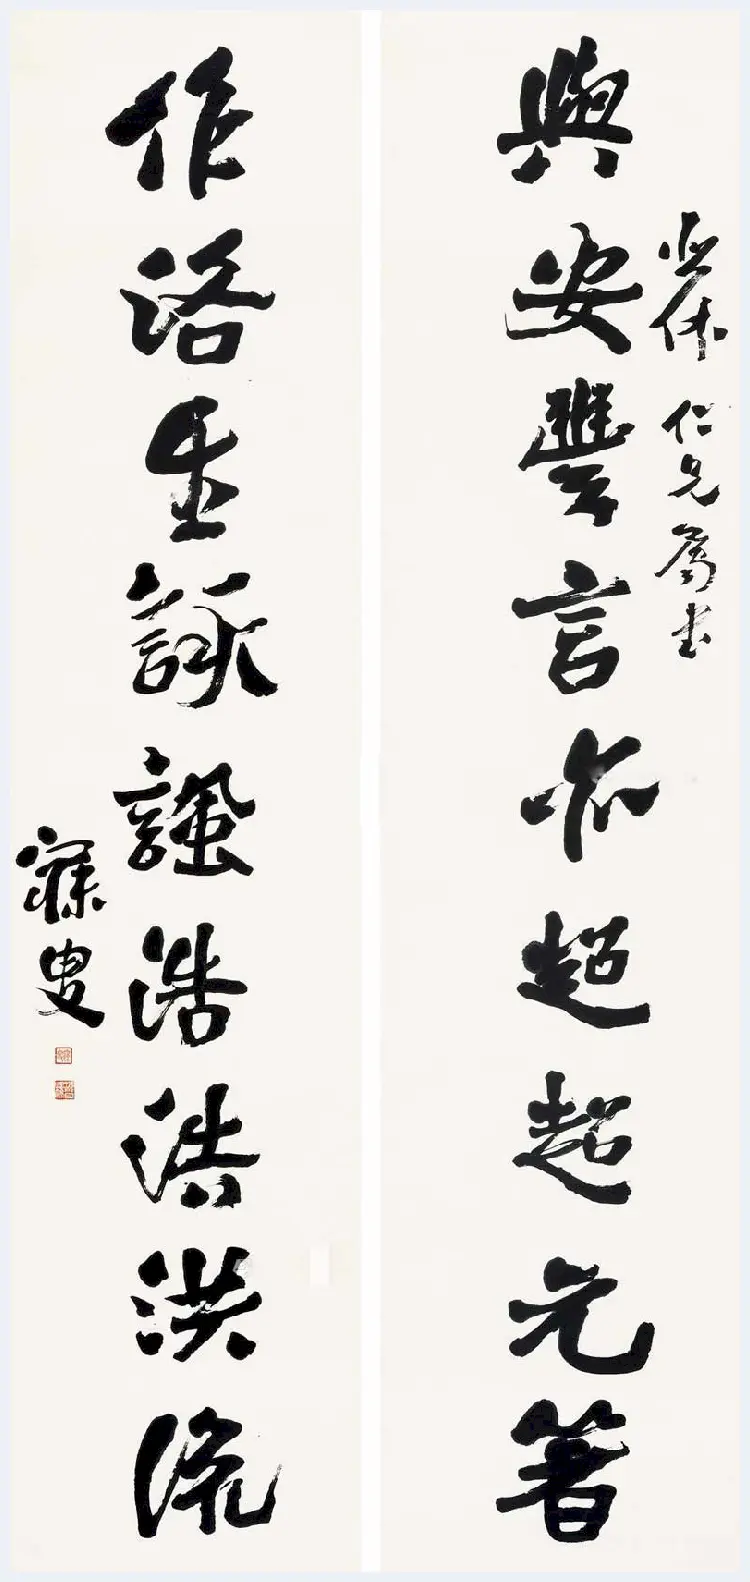 與安豐言亦超超元箸
仁兄屬書
作洛生詠諷浩浩洪流
寐叟